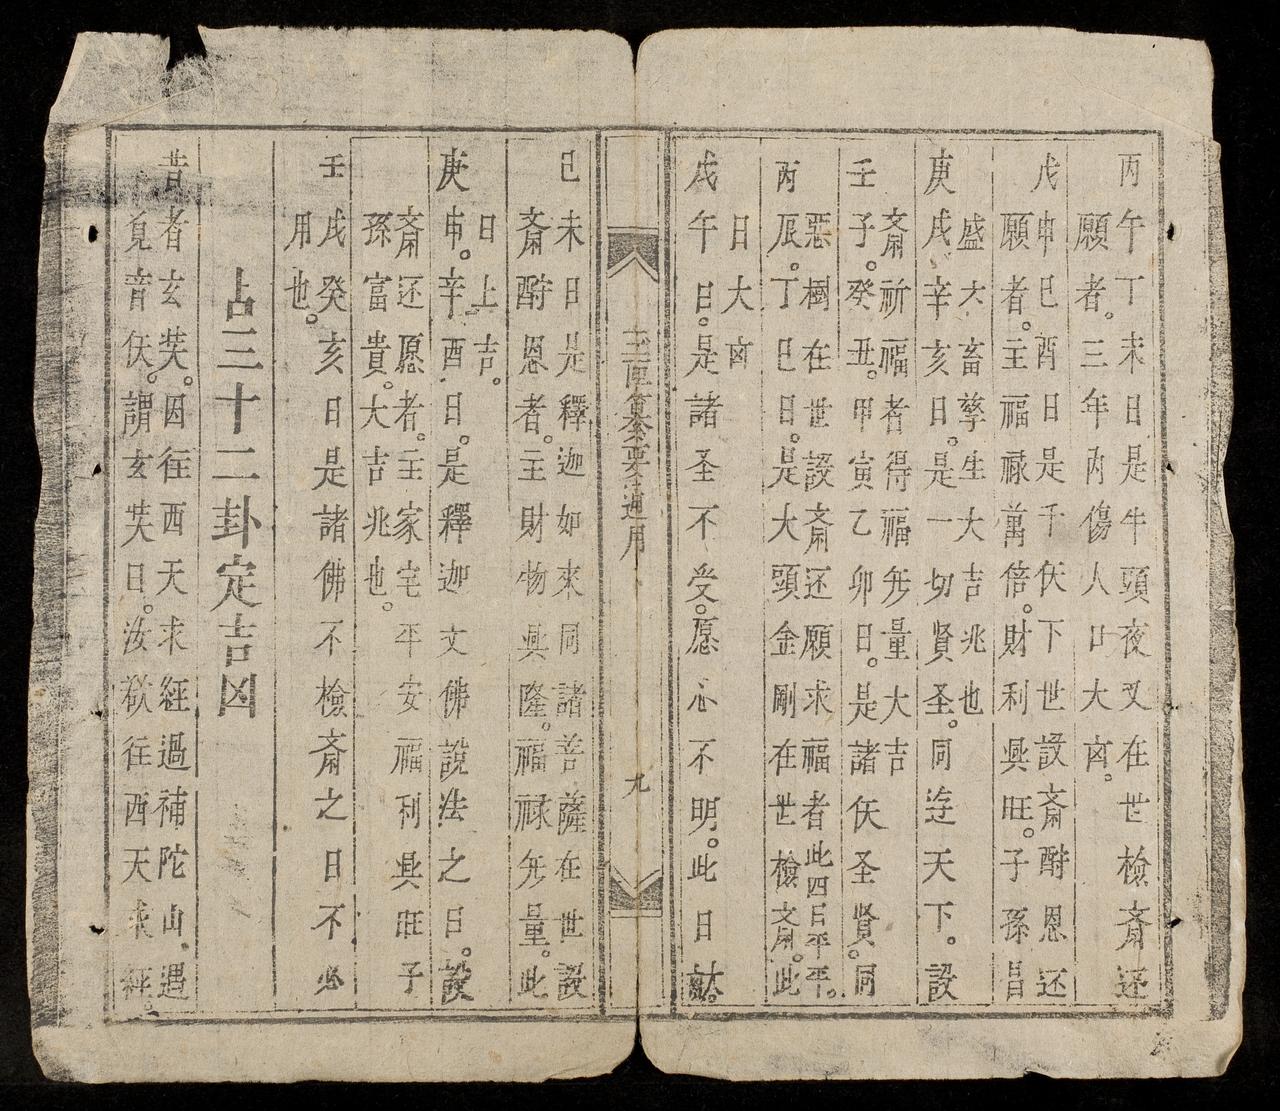 丙午丁未日是牛頭夜叉在世檢斎还
願者。三年內傷人口大凶。
戊申巳酉日是千仸下世設斎酧恩还
願者。主福禄萬倍。財利興旺。子孫昌
盛大畜孳生大吉兆也
庚戌辛亥日。是一切賢圣。同迬天下。設
斎祈福者得福旡量大吉
壬子。癸丑。甲寅乙卯日。是諸仸圣賢。同
惡樹在世設斎还願求福者此四日平平。
丙辰。丁巳日。是大頭金剛在世檢斎。此
日大凶
戊午日。是諸圣不受。愿心不明。此日
三百纂要全通用
九
巳未日是釋迦如來同諸菩薩在世設
斎酧恩者。主財物興隆。福禄旡量。此
日上吉。
庚申。辛酉日。是釋迦文佛說法之日。設
斎还愿者。主家宅平安福利興旺子
孫富貴。大吉兆也。
壬戌癸亥日是諸佛不檢斎之日不必
用也。
占三十二卦定吉凶
昔者玄奘。因往西天求經過補陀山遇
覓音仸。謂玄奘曰。汝欲往西天求經。